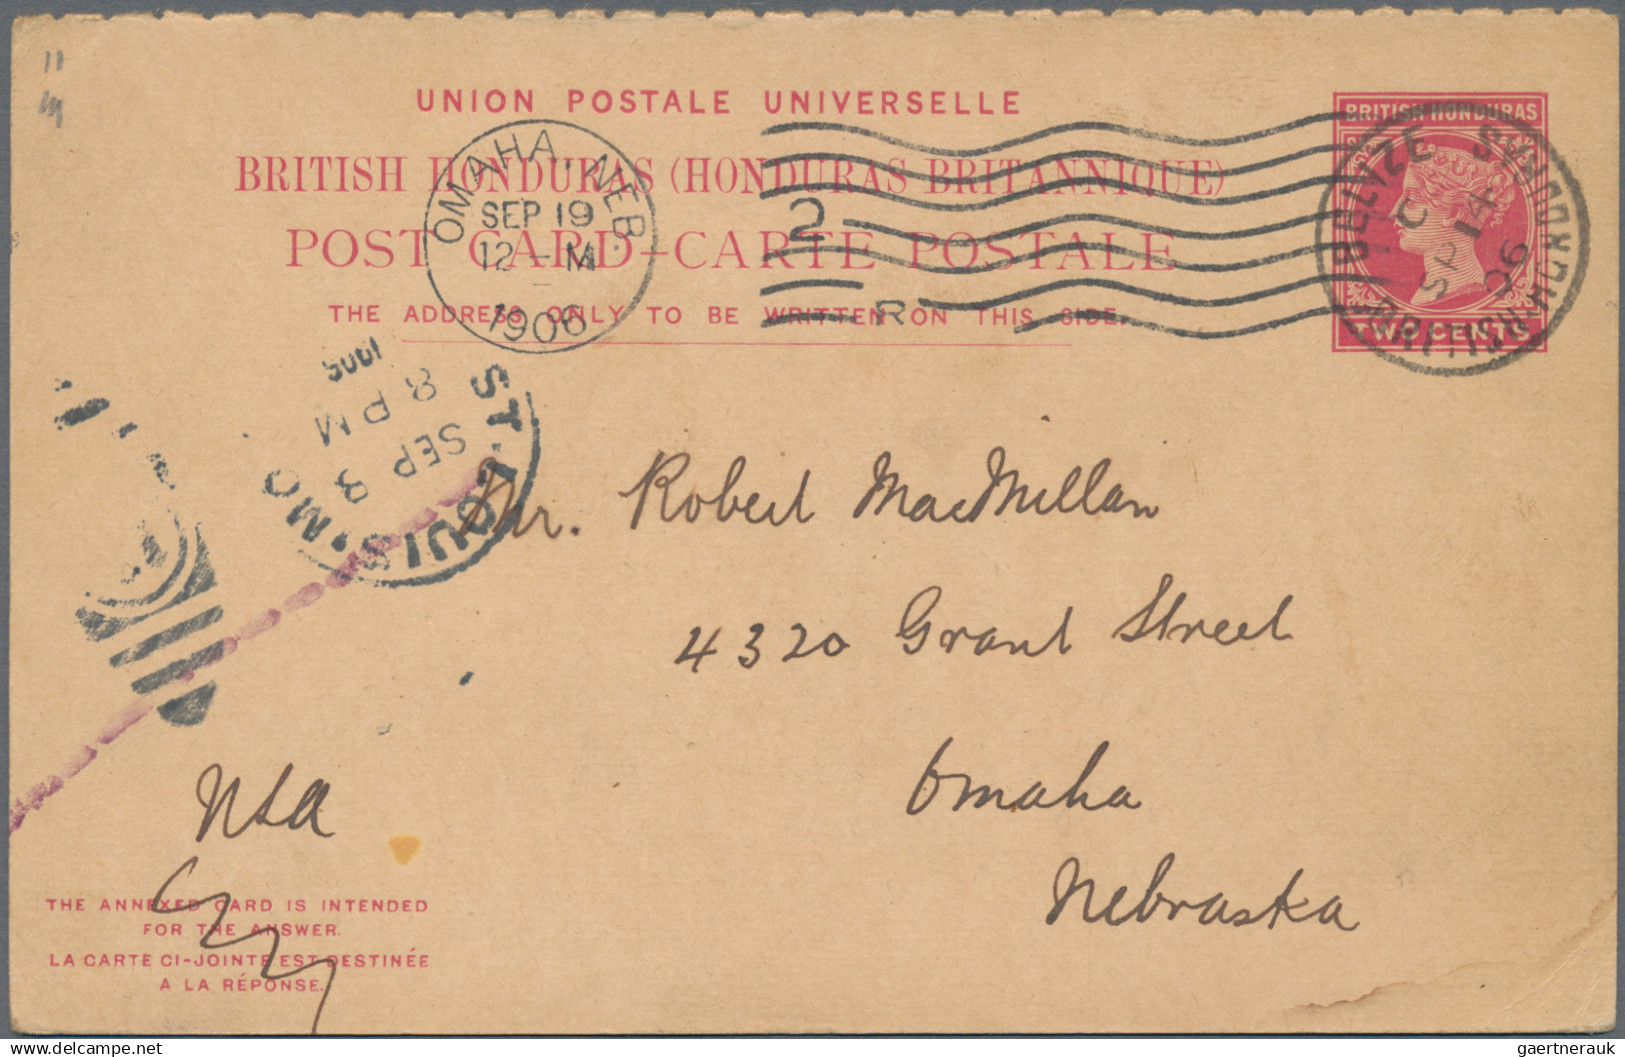 UNION POSTALE UNIVERSELLE
BRITISH HONDURAS (HONDURAS BRITANNIQUE)
POST CARD–CARTE POSTALE
THE ADDRESS ONLY TO BE WRITTEN ON THIS SIDE.
BRITISH HONDURAS
TWO CENTS
BELIZE
BRITISH HONDURAS
C
SP 14
06
OMAHA, NEB.
SEP 19
12 – M
1906
2
R
ST. LOUIS, MO
8 PM
Mr. Robert MacMillan
4320 Grant Street
Omaha
Nebraska
USA
THE ANNEXED CARD IS INTENDED
FOR THE ANSWER.
LA CARTE CI-JOINTE EST DESTINÉE
A LA RÉPONSE.
delcampe.net
gaertnerauk